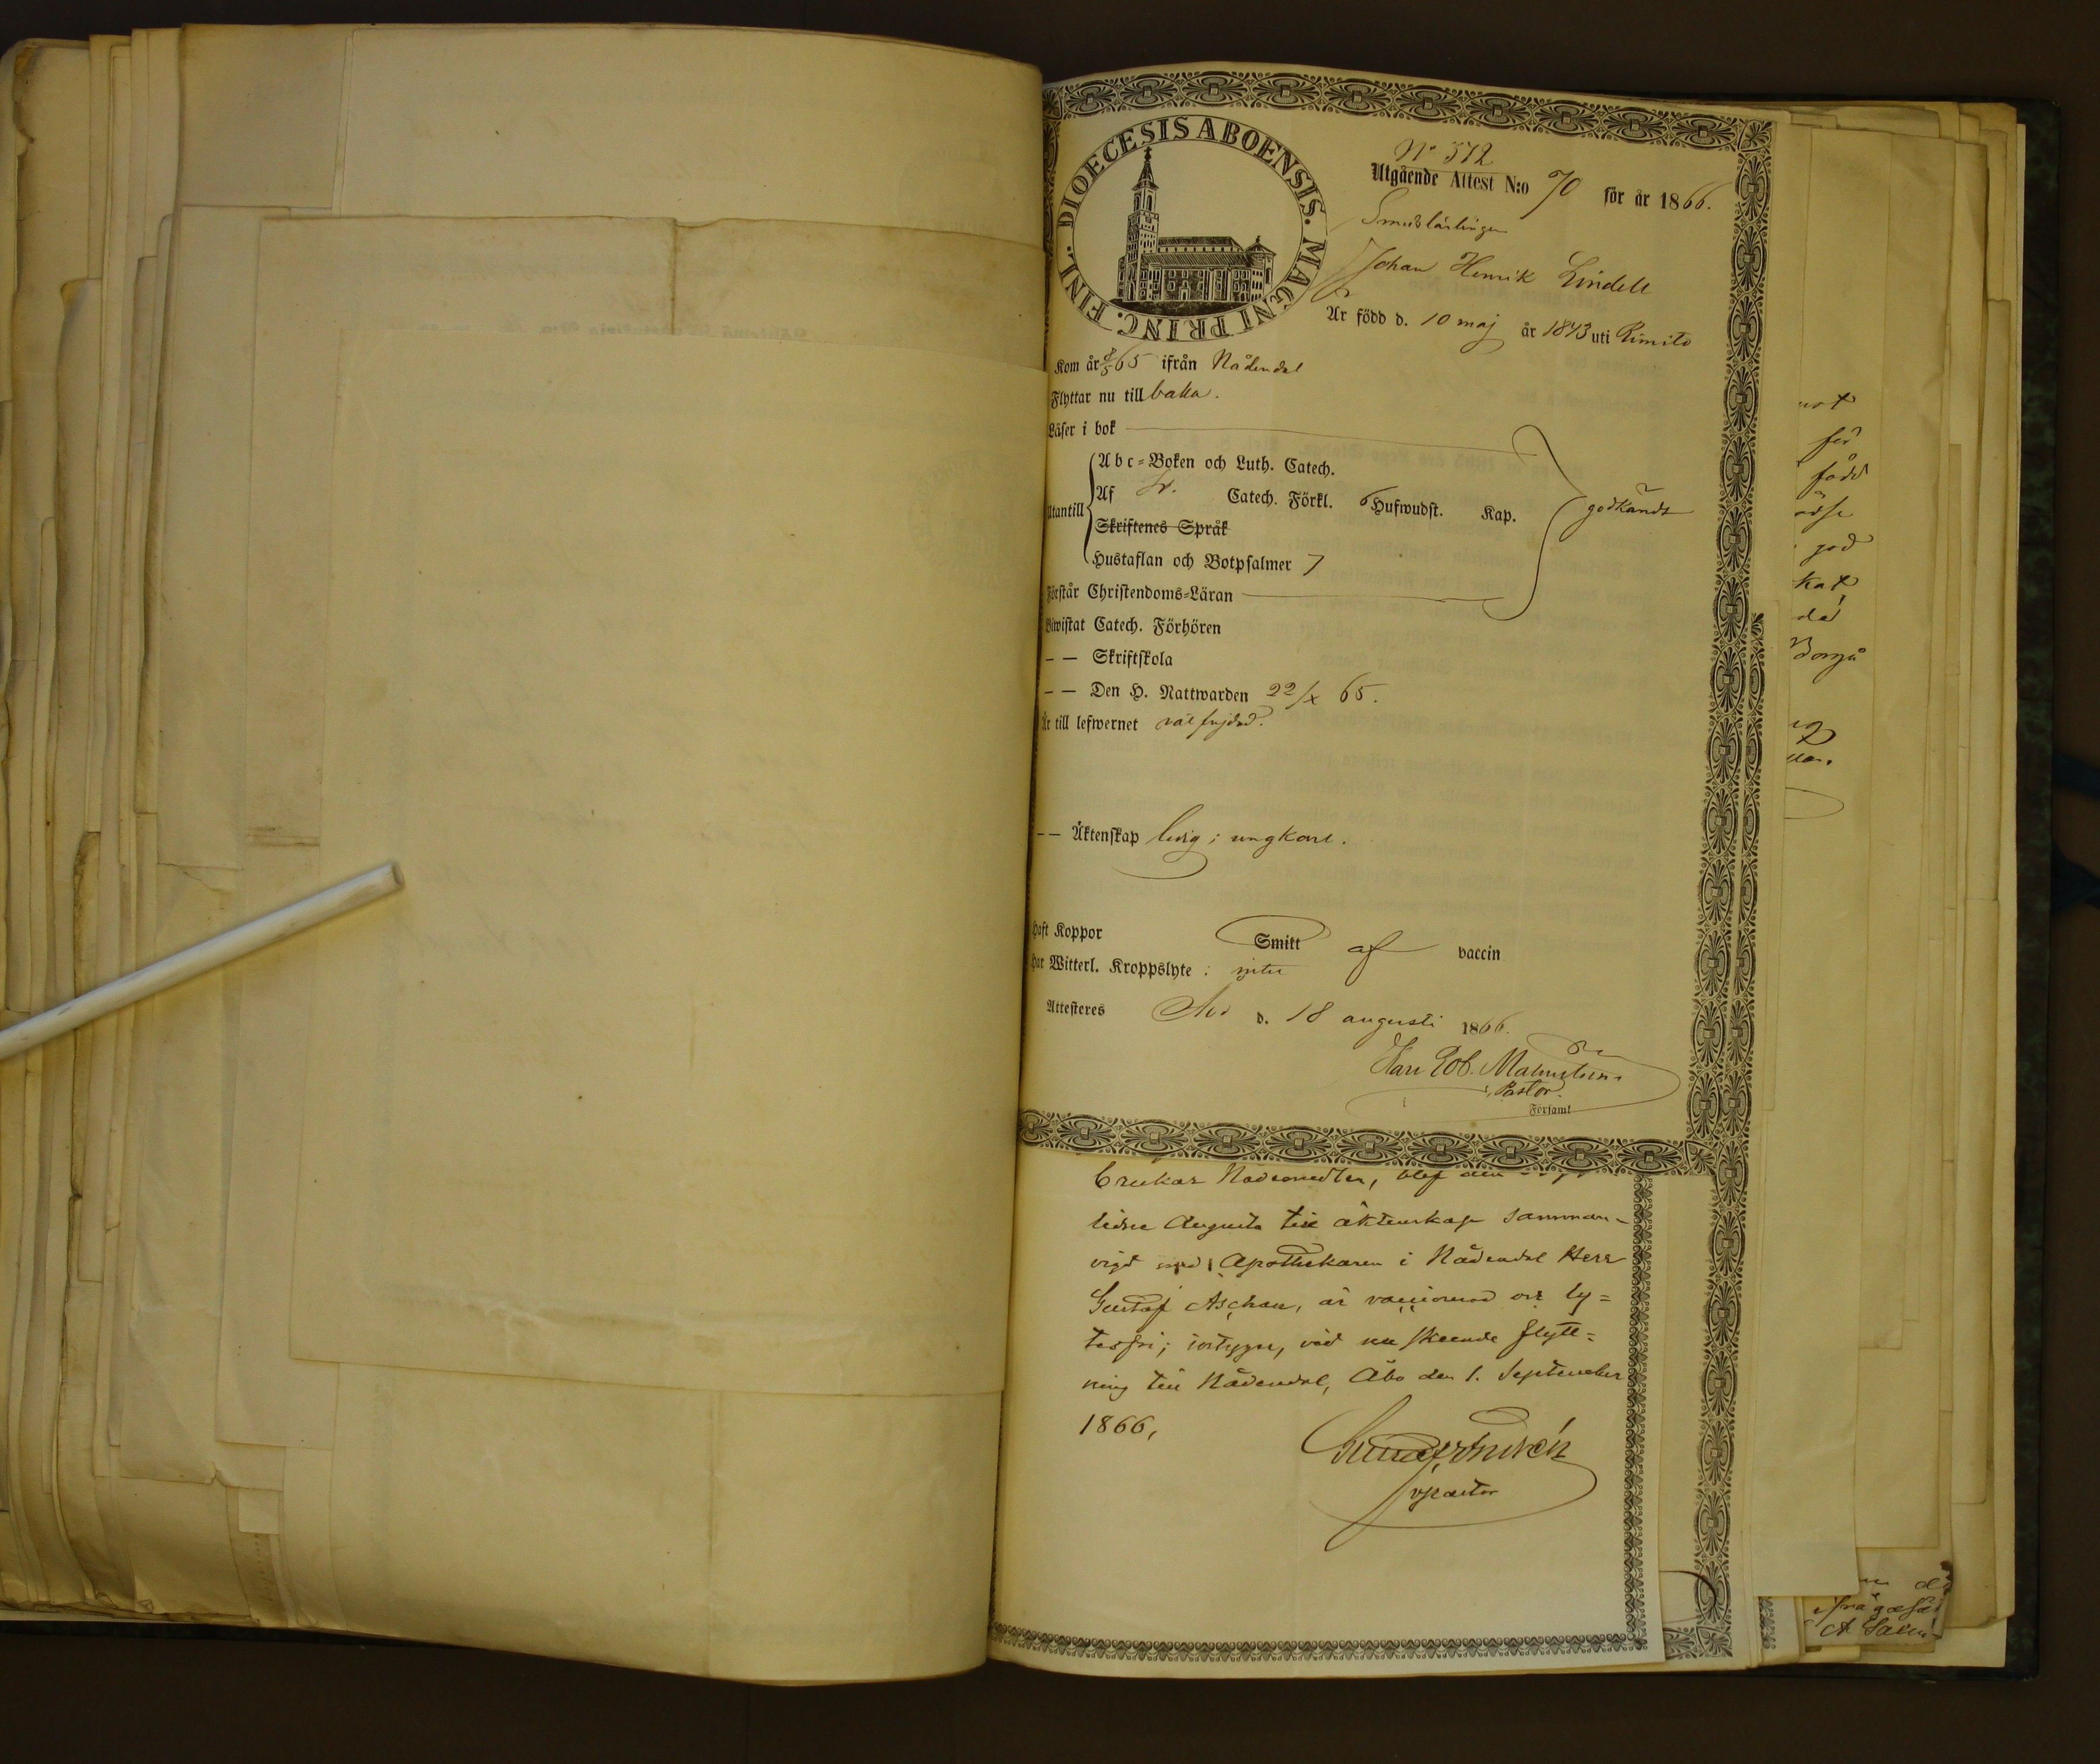 DIOECESIS ABOENSIS. MAGNI PRINC. FINL.
No 372
Utgående Attest N:o 70 för år 1866.
Smedslärlingen
Johan Henrik Lindell
Är född d. 10 maj år 1843 uti Rimito
Kom år 65 ifrån Nådendal
Flyttar nu till baka.
Läser i bok
Abc=Boken och Luth. Catech.
Utantill Af Sv. Catech. Förkl. 6 Hufwudst. Kap. godkändt
Skriftenes Språk
Hustaflan och Botpsalmer 7
Förstår Christendoms=Läran
Biwistat Catech. Förhören
– — Skriftskola
– — Den H. Nattwarden 22/X 65.
Är till lefwernet välfrejdad.
– — Äktenskap ledig; ungkarl.
Haft Koppor Smitt af vaccin
Har Witterl. Kroppslyte: intet
Attesteres Åbo d. 18 augusti 1866.
Karl Rob. Malmström
Pastor.
Forsaml
brukar Nådemedlen, blef den
lidne Augusti till äktenskap samman-
vigd med Apothekaren i Nådendal Herr
Gustaf Aschan, är vaccinerad och ly=
tesfri; intygar, vid nu skeende flytt=
ning till Nådendal, Åbo den 1. September
1866,
vpastor
för
född
god
kat
Borgå